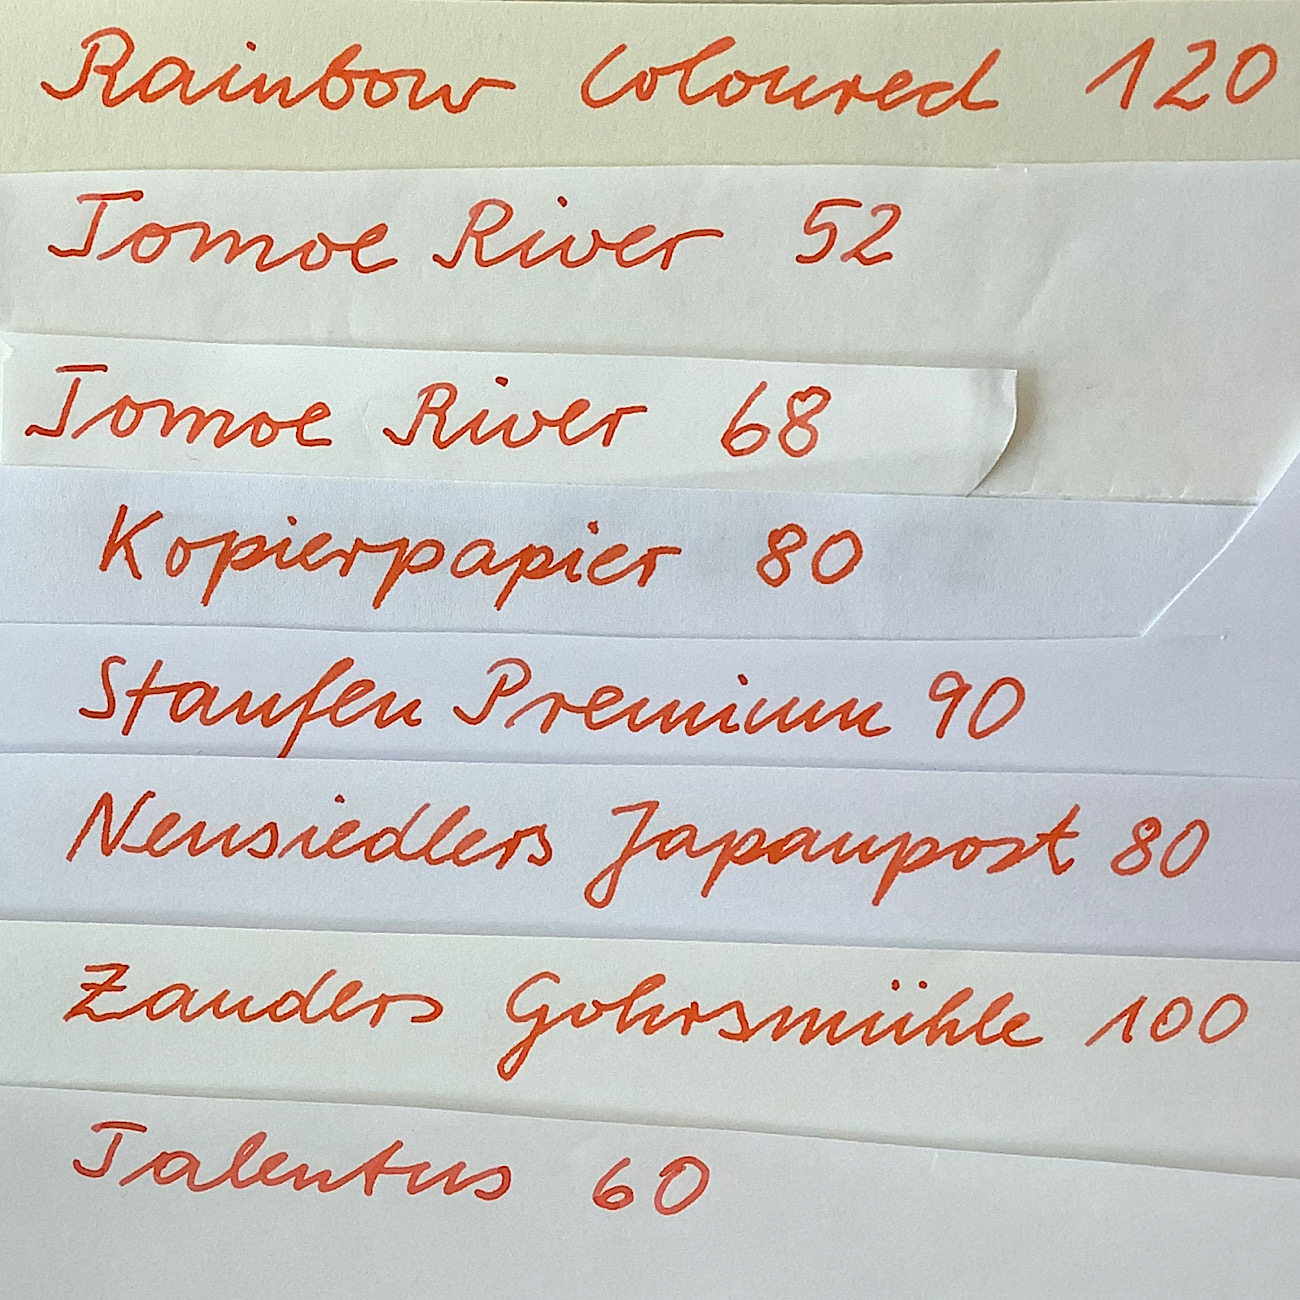 Rainbow Coloured 120
Tomoe River 52
Tomoe River 68
Kopierpapier 80
Staufen Premium 90
Neusiedlers Japanpost 80
Zanders Gohrsmühle 100
Talentus 60